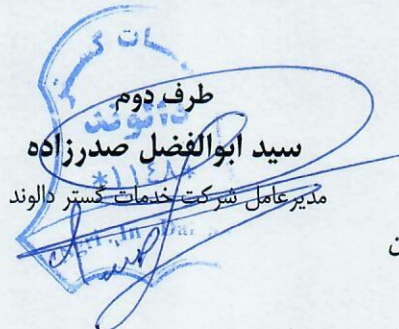 طرف دوم
سید ابوالفضل صدرزاده
مدیرعامل شرکت خدمات گستر دالوند
*۱۱٤۸*
ن